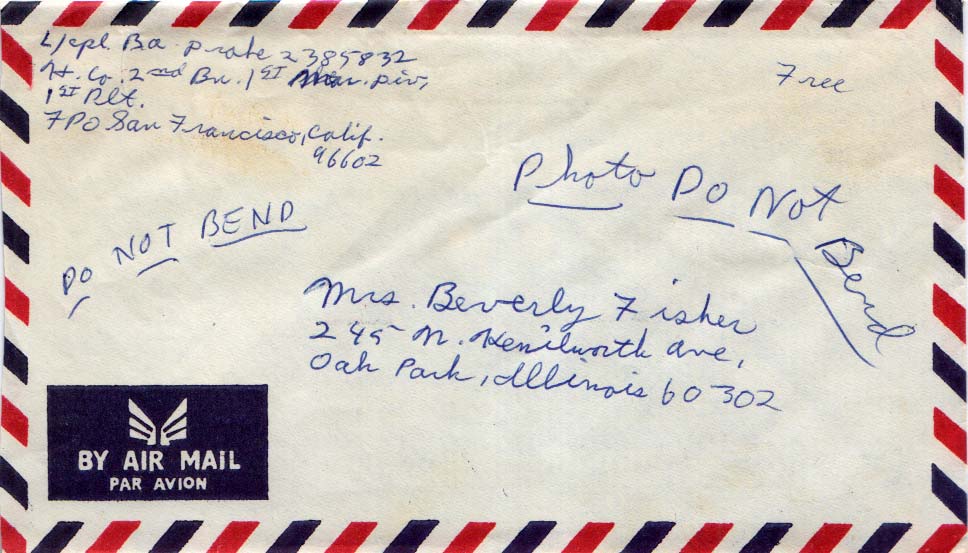 L/cpl. B.a. Prate 2385832
H. Co. 2nd Bn. 1ST Mar. Div,
1ST Plt.
FPO San Francisco, Calif.
96602
Free
Photo Do Not Bend
DO NOT BEND
Mrs. Beverly Fisher
245 N. Kenilworth ave,
Oak Park, Illinois 60302
BY AIR MAIL
PAR AVION